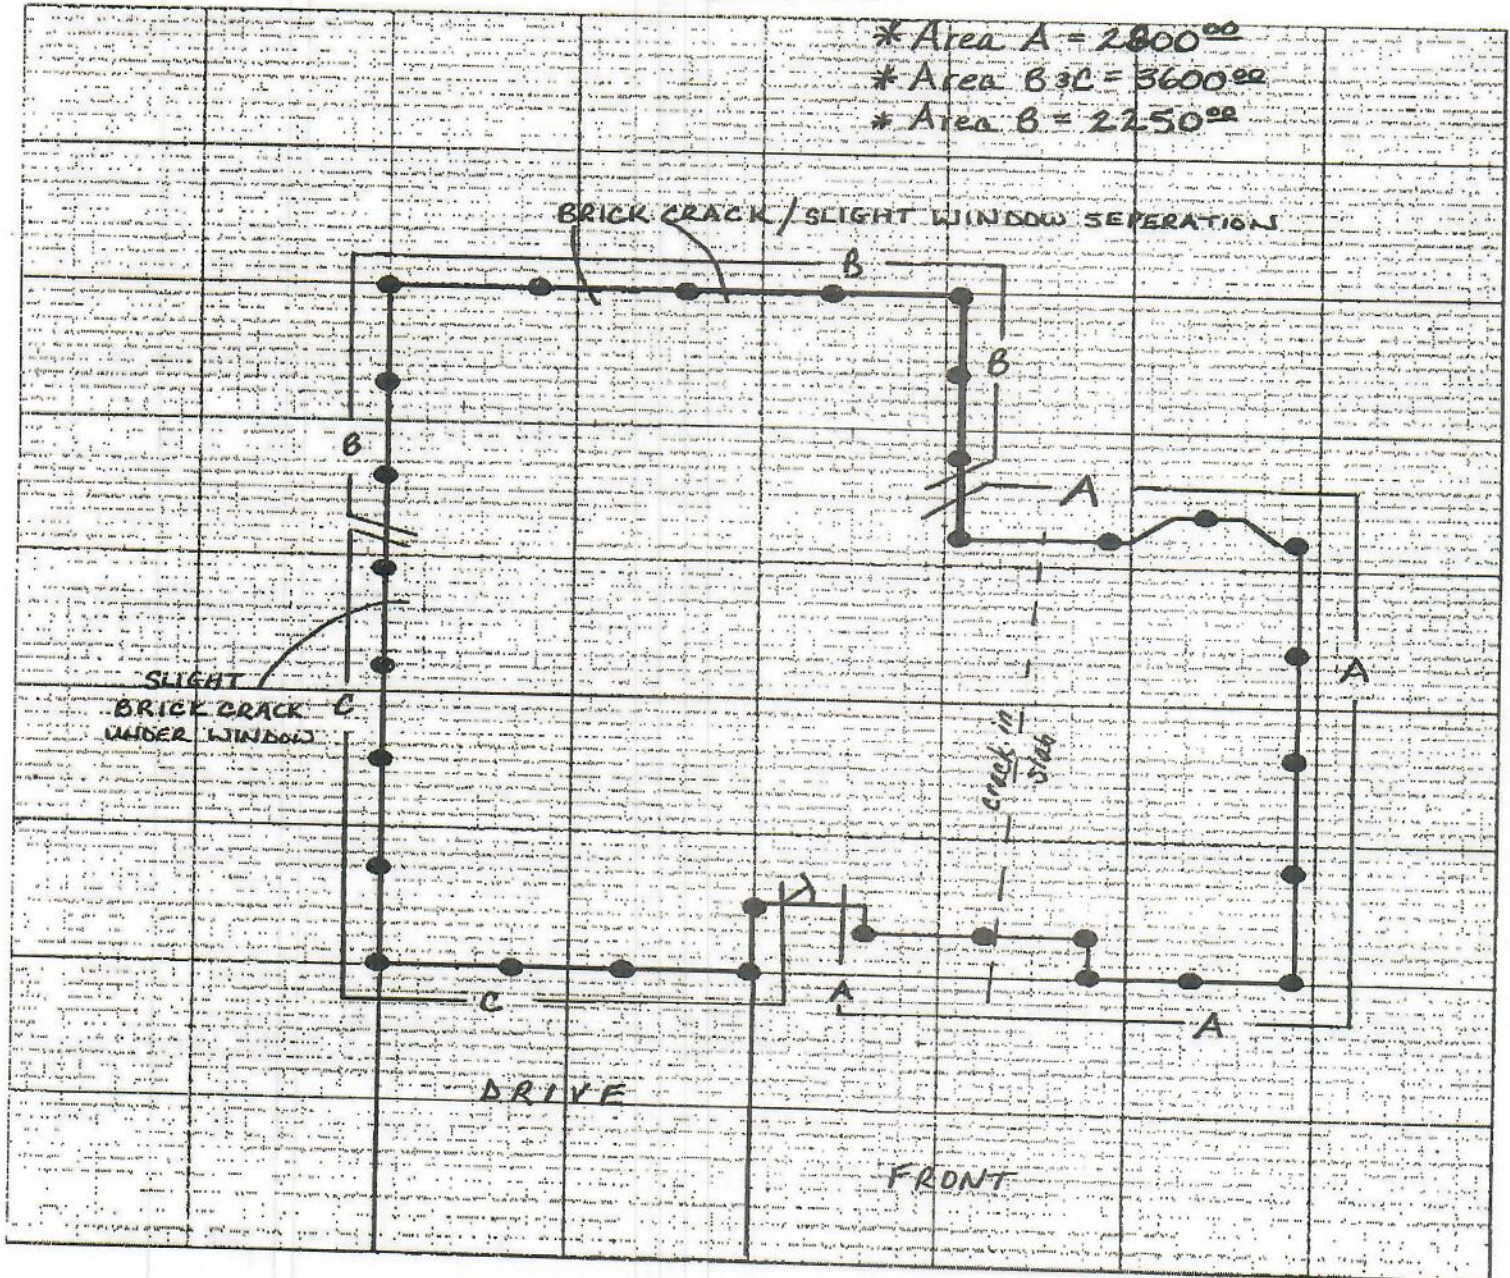 * Area A = 2800⁰⁰
* Area B & C = 3600⁰⁰
* Area B = 2250⁰⁰
BRICK CRACK / SLIGHT WINDOW SEPERATION
B
B
B
A
A
SLIGHT
BRICK CRACK
UNDER WINDOW
C
crack in
slab
C
A
A
DRIVE
FRONT